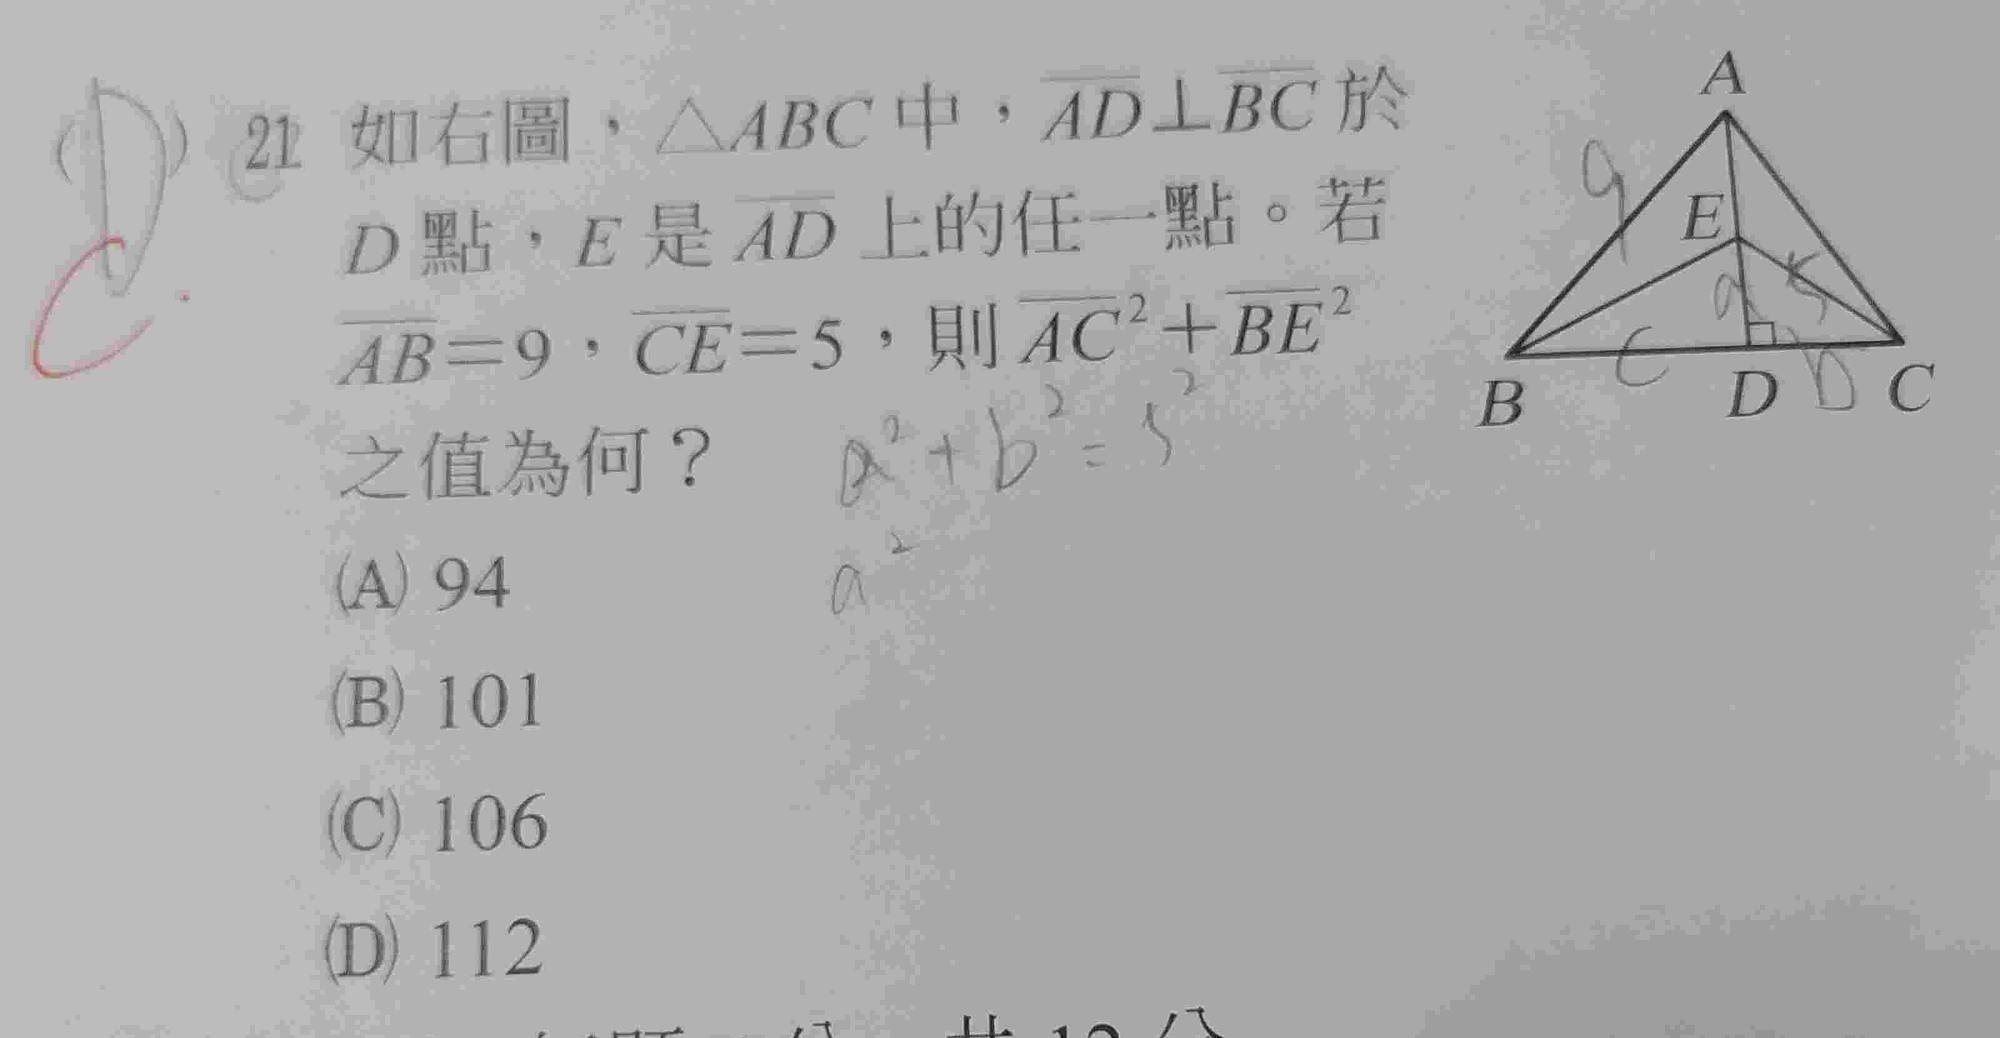 (D)
C
21 如右圖，△ABC中，AD⊥BC於
D點，E是AD上的任一點。若
AB=9，CE=5，則AC²+BE²
之值為何？
a²+b²=5²
a²
(A) 94
(B) 101
(C) 106
(D) 112
A
9
E
a
5
C
b
B
D
C
共12分